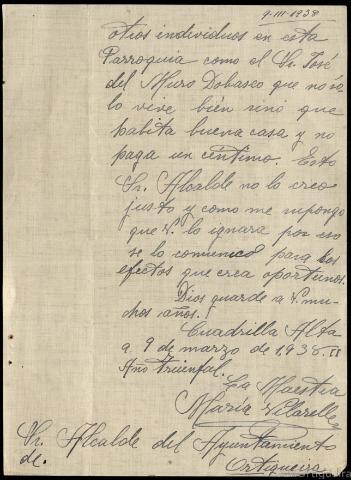 9-III-1938
otros individuos en esta
Parroquia como el Sr. José
del Muro Dobasco que no só-
lo vive bien sinó que
habita buena casa y no
paga un céntimo. Esto
Sr. Alcalde no lo creo
justo y como me supongo
que V. lo ignara por eso
se lo comunico para los
efectos que crea oportunos.
Dios guarde a V. mu-
chos años.
Cuadrilla Alta
a 9 de marzo de 1938. II
Año triunfal.
La Maestra
María Vilarelle
Sr. Alcalde del Ayuntamiento
de.
Ortigueira